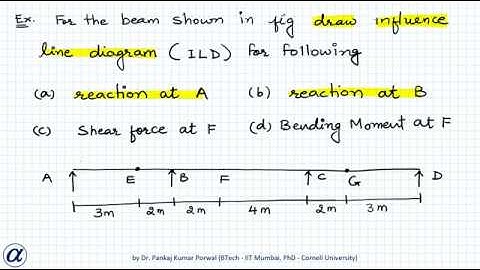 Ex. For the beam shown in fig draw influence
line diagram (ILD) for following
(a) reaction at A (b) reaction at B
(c) Shear force at F (d) Bending Moment at F
A E B F C G D
3m 2m 2m 4m 2m 3m
α by Dr. Pankaj Kumar Porwal (BTech - IIT Mumbai, PhD - Cornell University)